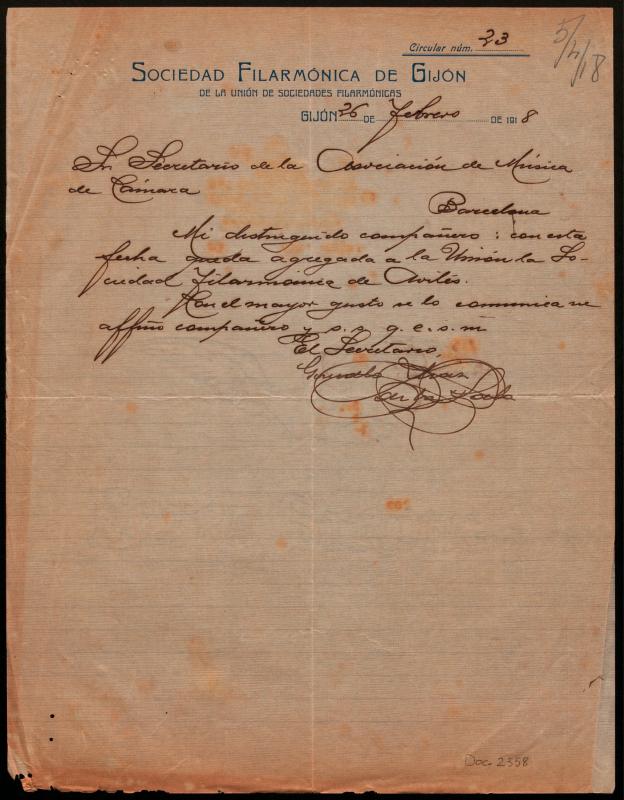 Circular núm. 23
5/4/18
SOCIEDAD FILARMÓNICA DE GIJÓN
DE LA UNIÓN DE SOCIEDADES FILARMÓNICAS
GIJÓN 26 DE Febrero DE 1918
Sr. Secretario de la Asociación de Música
de Cámara
Barcelona
Mi distinguido compañero: con esta
fecha queda agregada a la Unión la So-
ciedad Filarmónica de Avilés.
Con el mayor gusto se lo comunica su
affmo compañero y s. s. q. e. s. m
El Secretario,